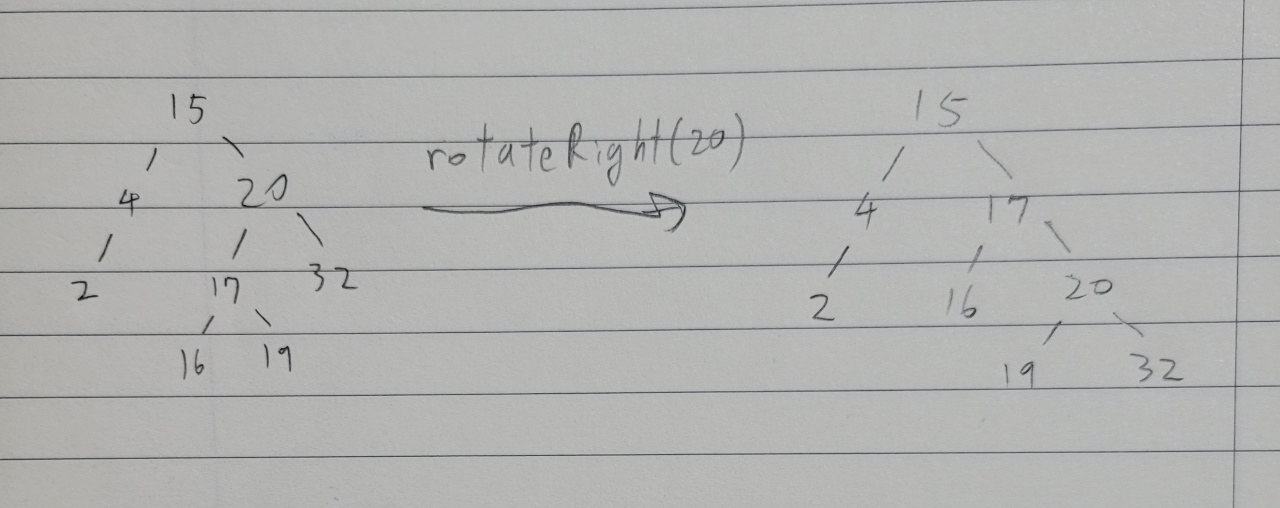 15
4 20
2 17 32
16 19
rotateRight(20)
15
4 17
2 16 20
19 32